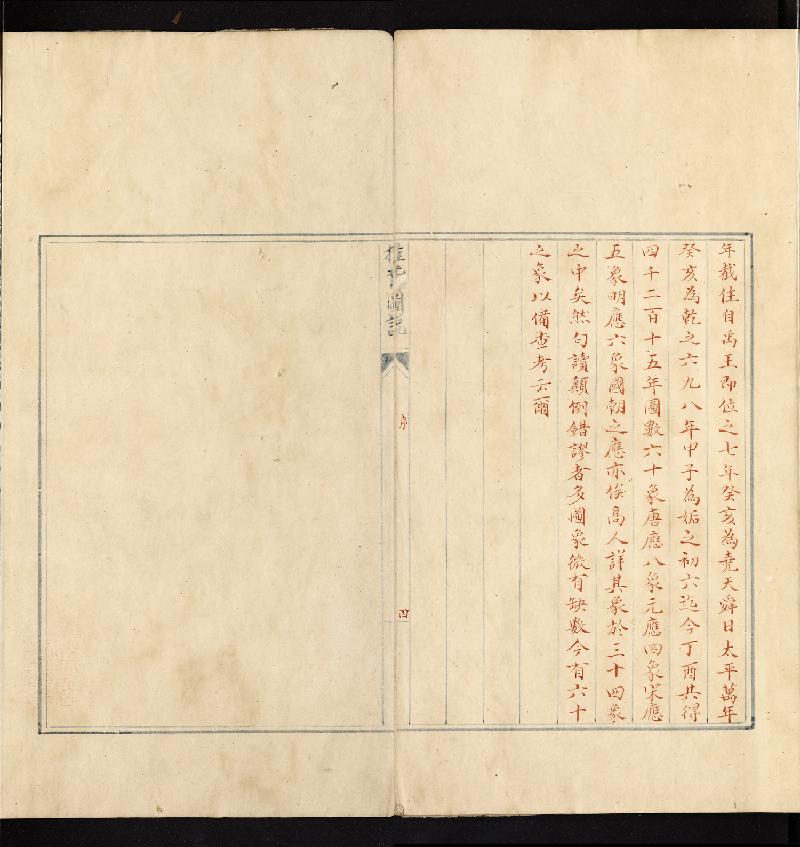 年截往自禹王即位之七年癸亥為堯天舜日太平萬年
癸亥為乾之六九八年甲子為姤之初六迄今丁酉共得
四千二百十五年圖數六十象唐應八象元應四象宋應
五象明應六象國朝之應亦俟高人詳其象於三十四象
之中矣然句讀顛倒錯謬者多圖象微有缺數今有六十
之象以備查考云爾
推背圖說
序
四